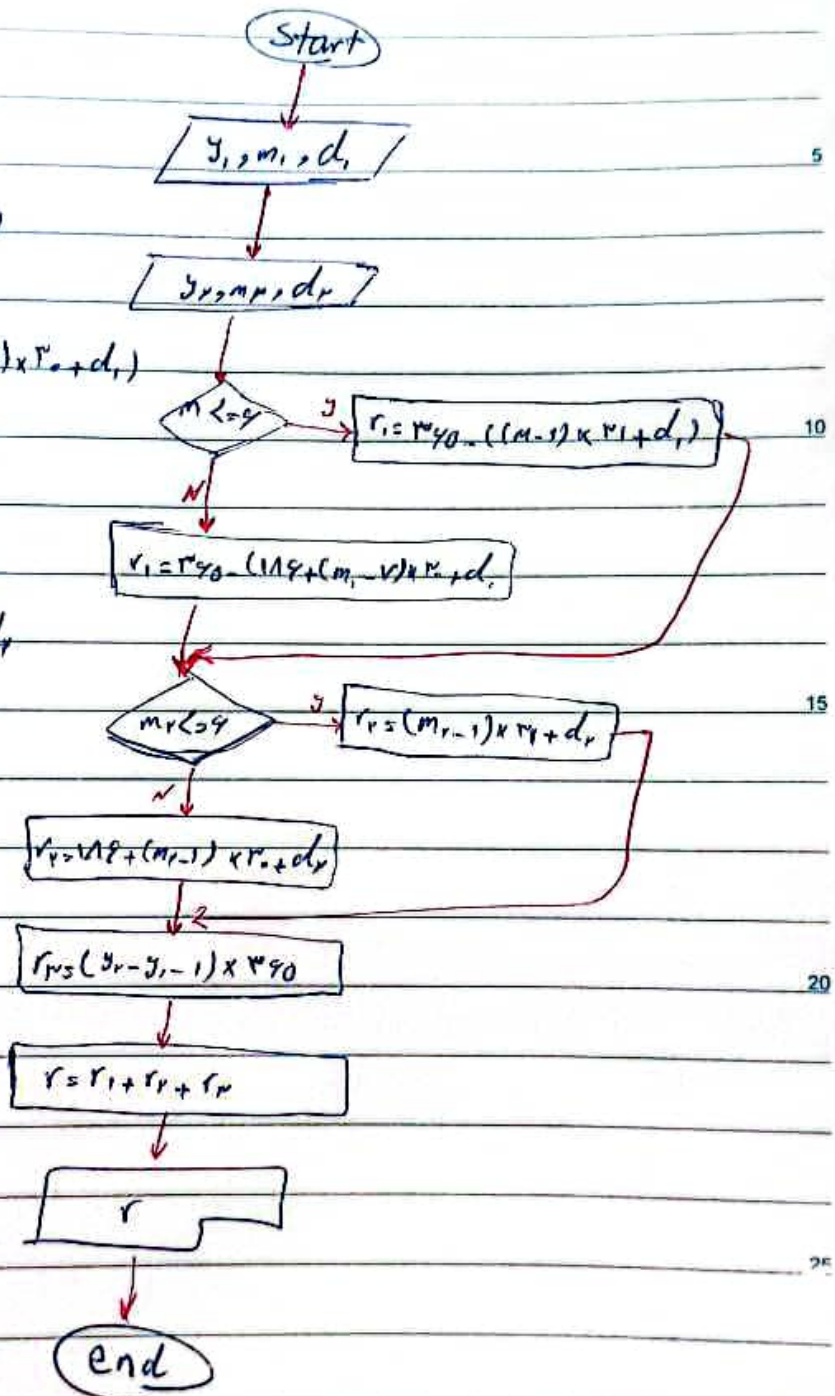 Start
y₁, m₁, d₁
5
y₂, m₂, d₂
) × ۳۰ + d₁)
m <= ۶
y
r₁ = ۳۶۵ - ((m-۱) × ۳۱ + d₁)
10
N
r₁ = ۳۶۵ - (۱۸۶ + (m₁ - ۷) × ۳۰ + d₁
m₂ <= ۶
y
r₂ = (m₂ - ۱) × ۳۱ + d₂
15
N
r₂ = ۱۸۶ + (m₂ - ۱) × ۳۰ + d₂
r₃ = (y₂ - y₁ - ۱) × ۳۶۵
20
r = r₁ + r₂ + r₃
r
25
end